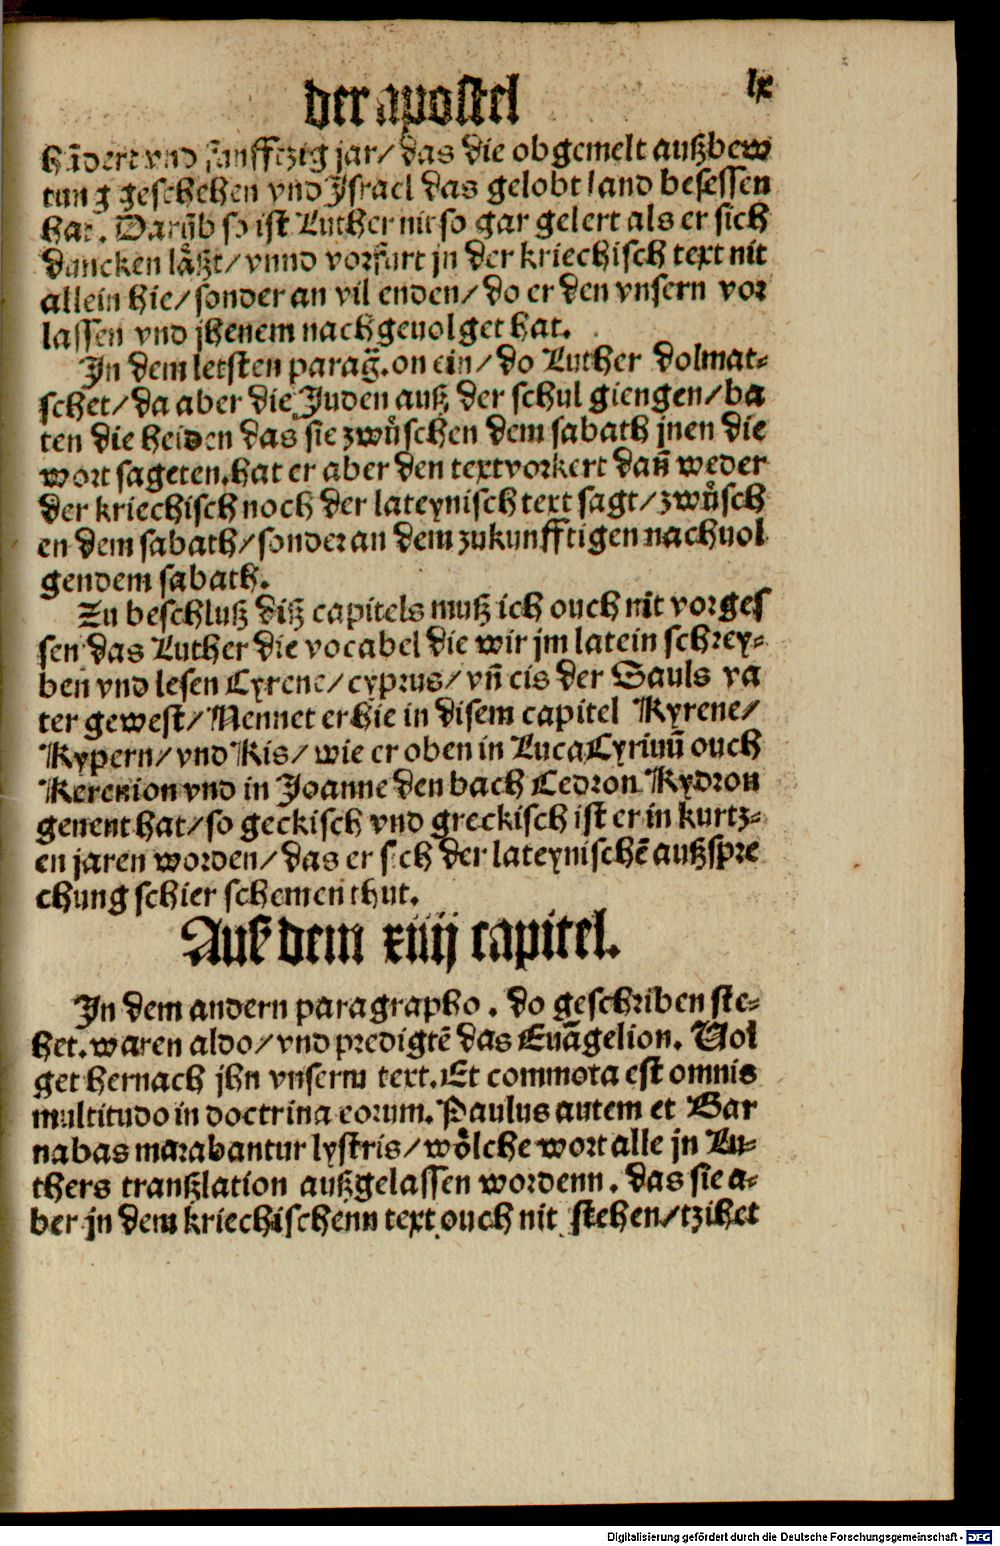 der apostel
lx
hũdert vnd funfftzig jar/ das die obgemelt außbew
tung geschehen vnd Israel das gelobt land besessen
hat. Darũb so ist Luther nit so gar gelert als er sich
duncken låßt/ vnnd vorfürt jn der kriechisch text nit
allein hie/ sonder an vil enden/ do er den vnsern vor
lassen vnd jhenem nachgeuolget hat.
In dem letsten parag̃. on ein/ do Luther dolmat⸗
schet/ da aber die Juden auß der schul giengen/ ba
ten die heiden das sie zwůschen dem sabath jnen die
wort sageten. hat er aber den text vorkert dañ weder
der kriechisch noch der lateynisch text sagt/ zwůsch
en dem sabath/ sonder an dem zukunfftigen nachuol
gendem sabath.
Zu beschluß diß capitels muß ich ouch nit vorges
sen das Luther die vocabel die wir jm latein schrey⸗
ben vnd lesen Cyrene/ cyprus/ vñ cis der Sauls va
ter gewest/ Nennet er hie in disem capitel Kyrene/
Kypern/ vnd Kis/ wie er oben in Luca Cyrinũ ouch
Kerenion vnd in Joanne den bach Cedron Kydron
genent hat/ so geckisch vnd greckisch ist er in kurtz⸗
en jaren worden/ das er sich der lateynischẽ außspre
chung schier schemen thut.
Auß dem xiiij capitel.
In dem andern paragrapho. do geschriben ste⸗
het. waren aldo/ vnd predigtẽ das Euãgelion. Uol
get hernach jhn vnserm text. Et commota est omnis
multitudo in doctrina eorum. Paulus autem et Bar
nabas marabantur lystris/ wölche wort alle jn Lu⸗
thers transßlation außgelassen wordenn. das sie a⸗
ber jn dem kriechischenn text ouch nit stehen/ tzihet
Digitalisierung gefördert durch die Deutsche Forschungsgemeinschaft - DFG